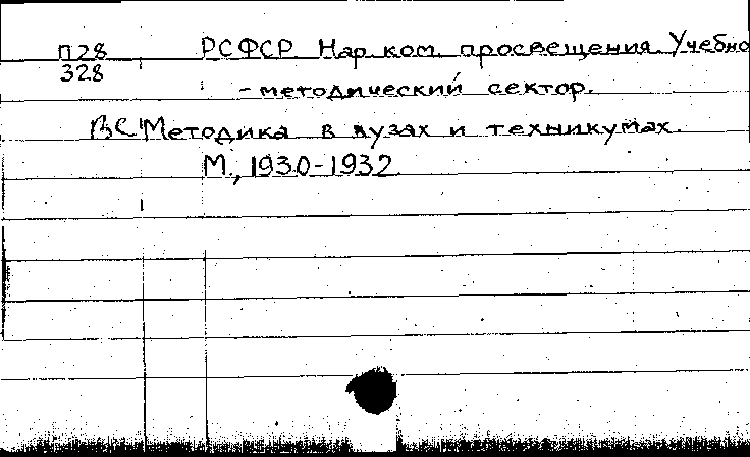 П28 РСФСР Нар. ком. просвещения. Учебно
328 -методический сектор.
ВС Методика в вузах и техникумах.
М., 1930-1932